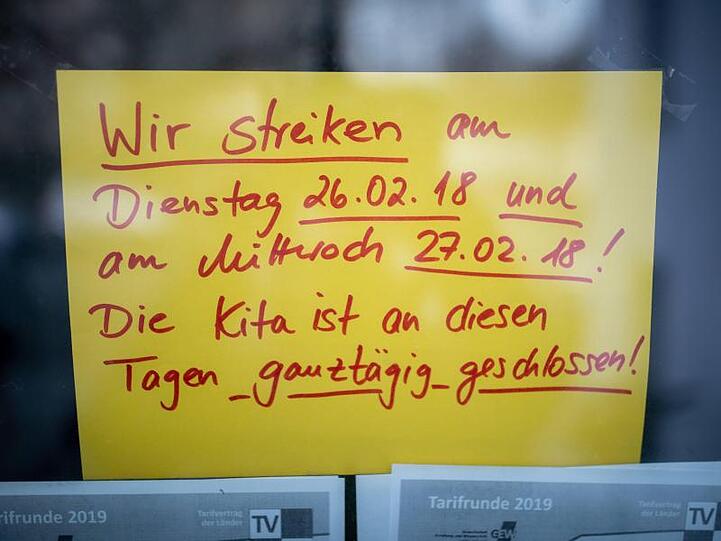 Wir streiken am
Dienstag 26.02.18 und
am Mittwoch 27.02.18!
Die Kita ist an diesen
Tagen _ganztägig_ geschlossen!
rifrunde 2019
Tarifvertrag
der Länder
TV
Tarifrunde 2019
Tarifvertrag
der Länder
TV
GEW